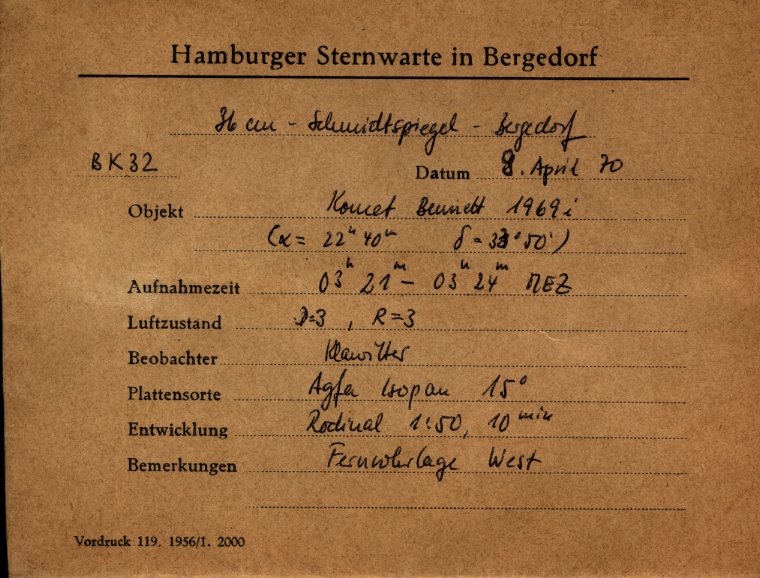 Hamburger Sternwarte in Bergedorf
36 cm - Schmidtspiegel - Bergedorf
BK32
Datum 8. April 70
Objekt Komet Bennett 1969i
(α = 22h 40m δ = 33° 50')
Aufnahmezeit 03h 21m - 03h 24m MEZ
Luftzustand D=3, R=3
Beobachter Klawitter
Plattensorte Agfa Isopan 15°
Entwicklung Rodinal 1:50, 10 min
Bemerkungen Fernrohrlage West
Vordruck 119. 1956/1. 2000